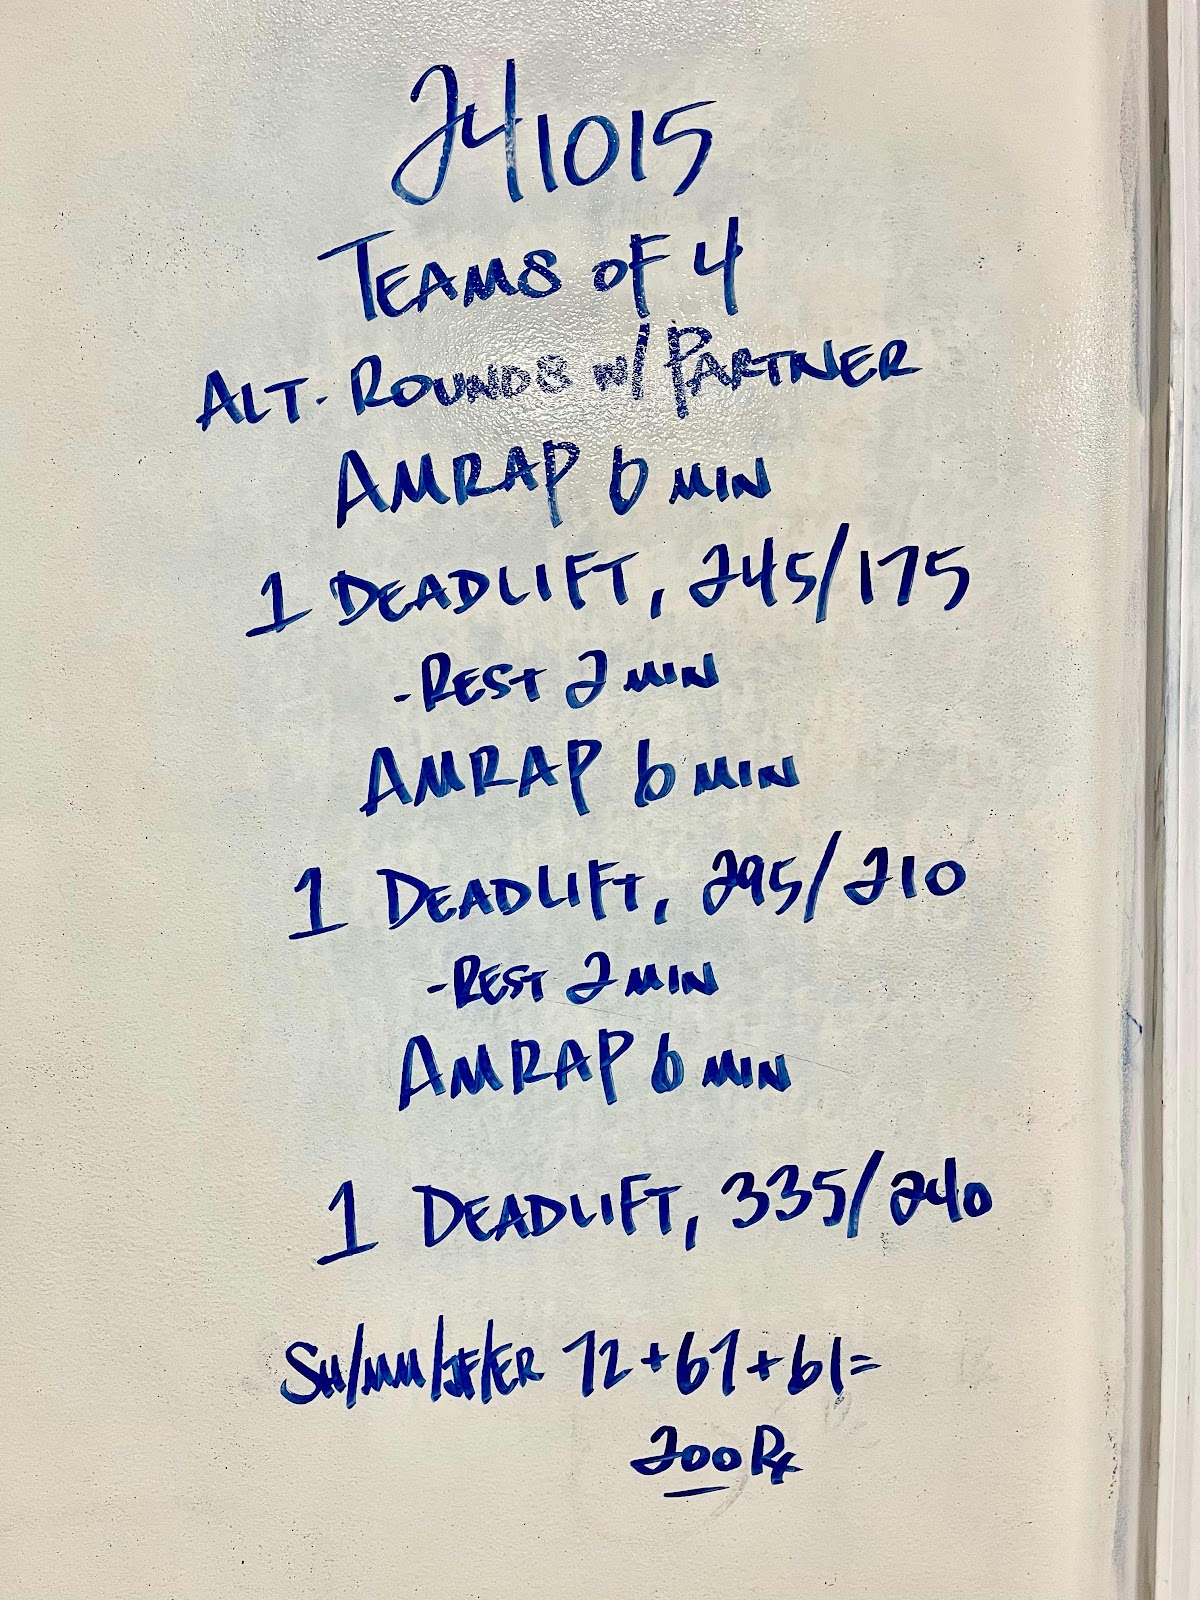 241015
TEAMS OF 4
ALT. ROUNDS W/ PARTNER
AMRAP 6 MIN
1 DEADLIFT, 245/175
-REST 2 MIN
AMRAP 6 MIN
1 DEADLIFT, 295/210
-REST 2 MIN
AMRAP 6 MIN
1 DEADLIFT, 335/240
SH/MM/JF/ER 72+67+61=
200 Rx